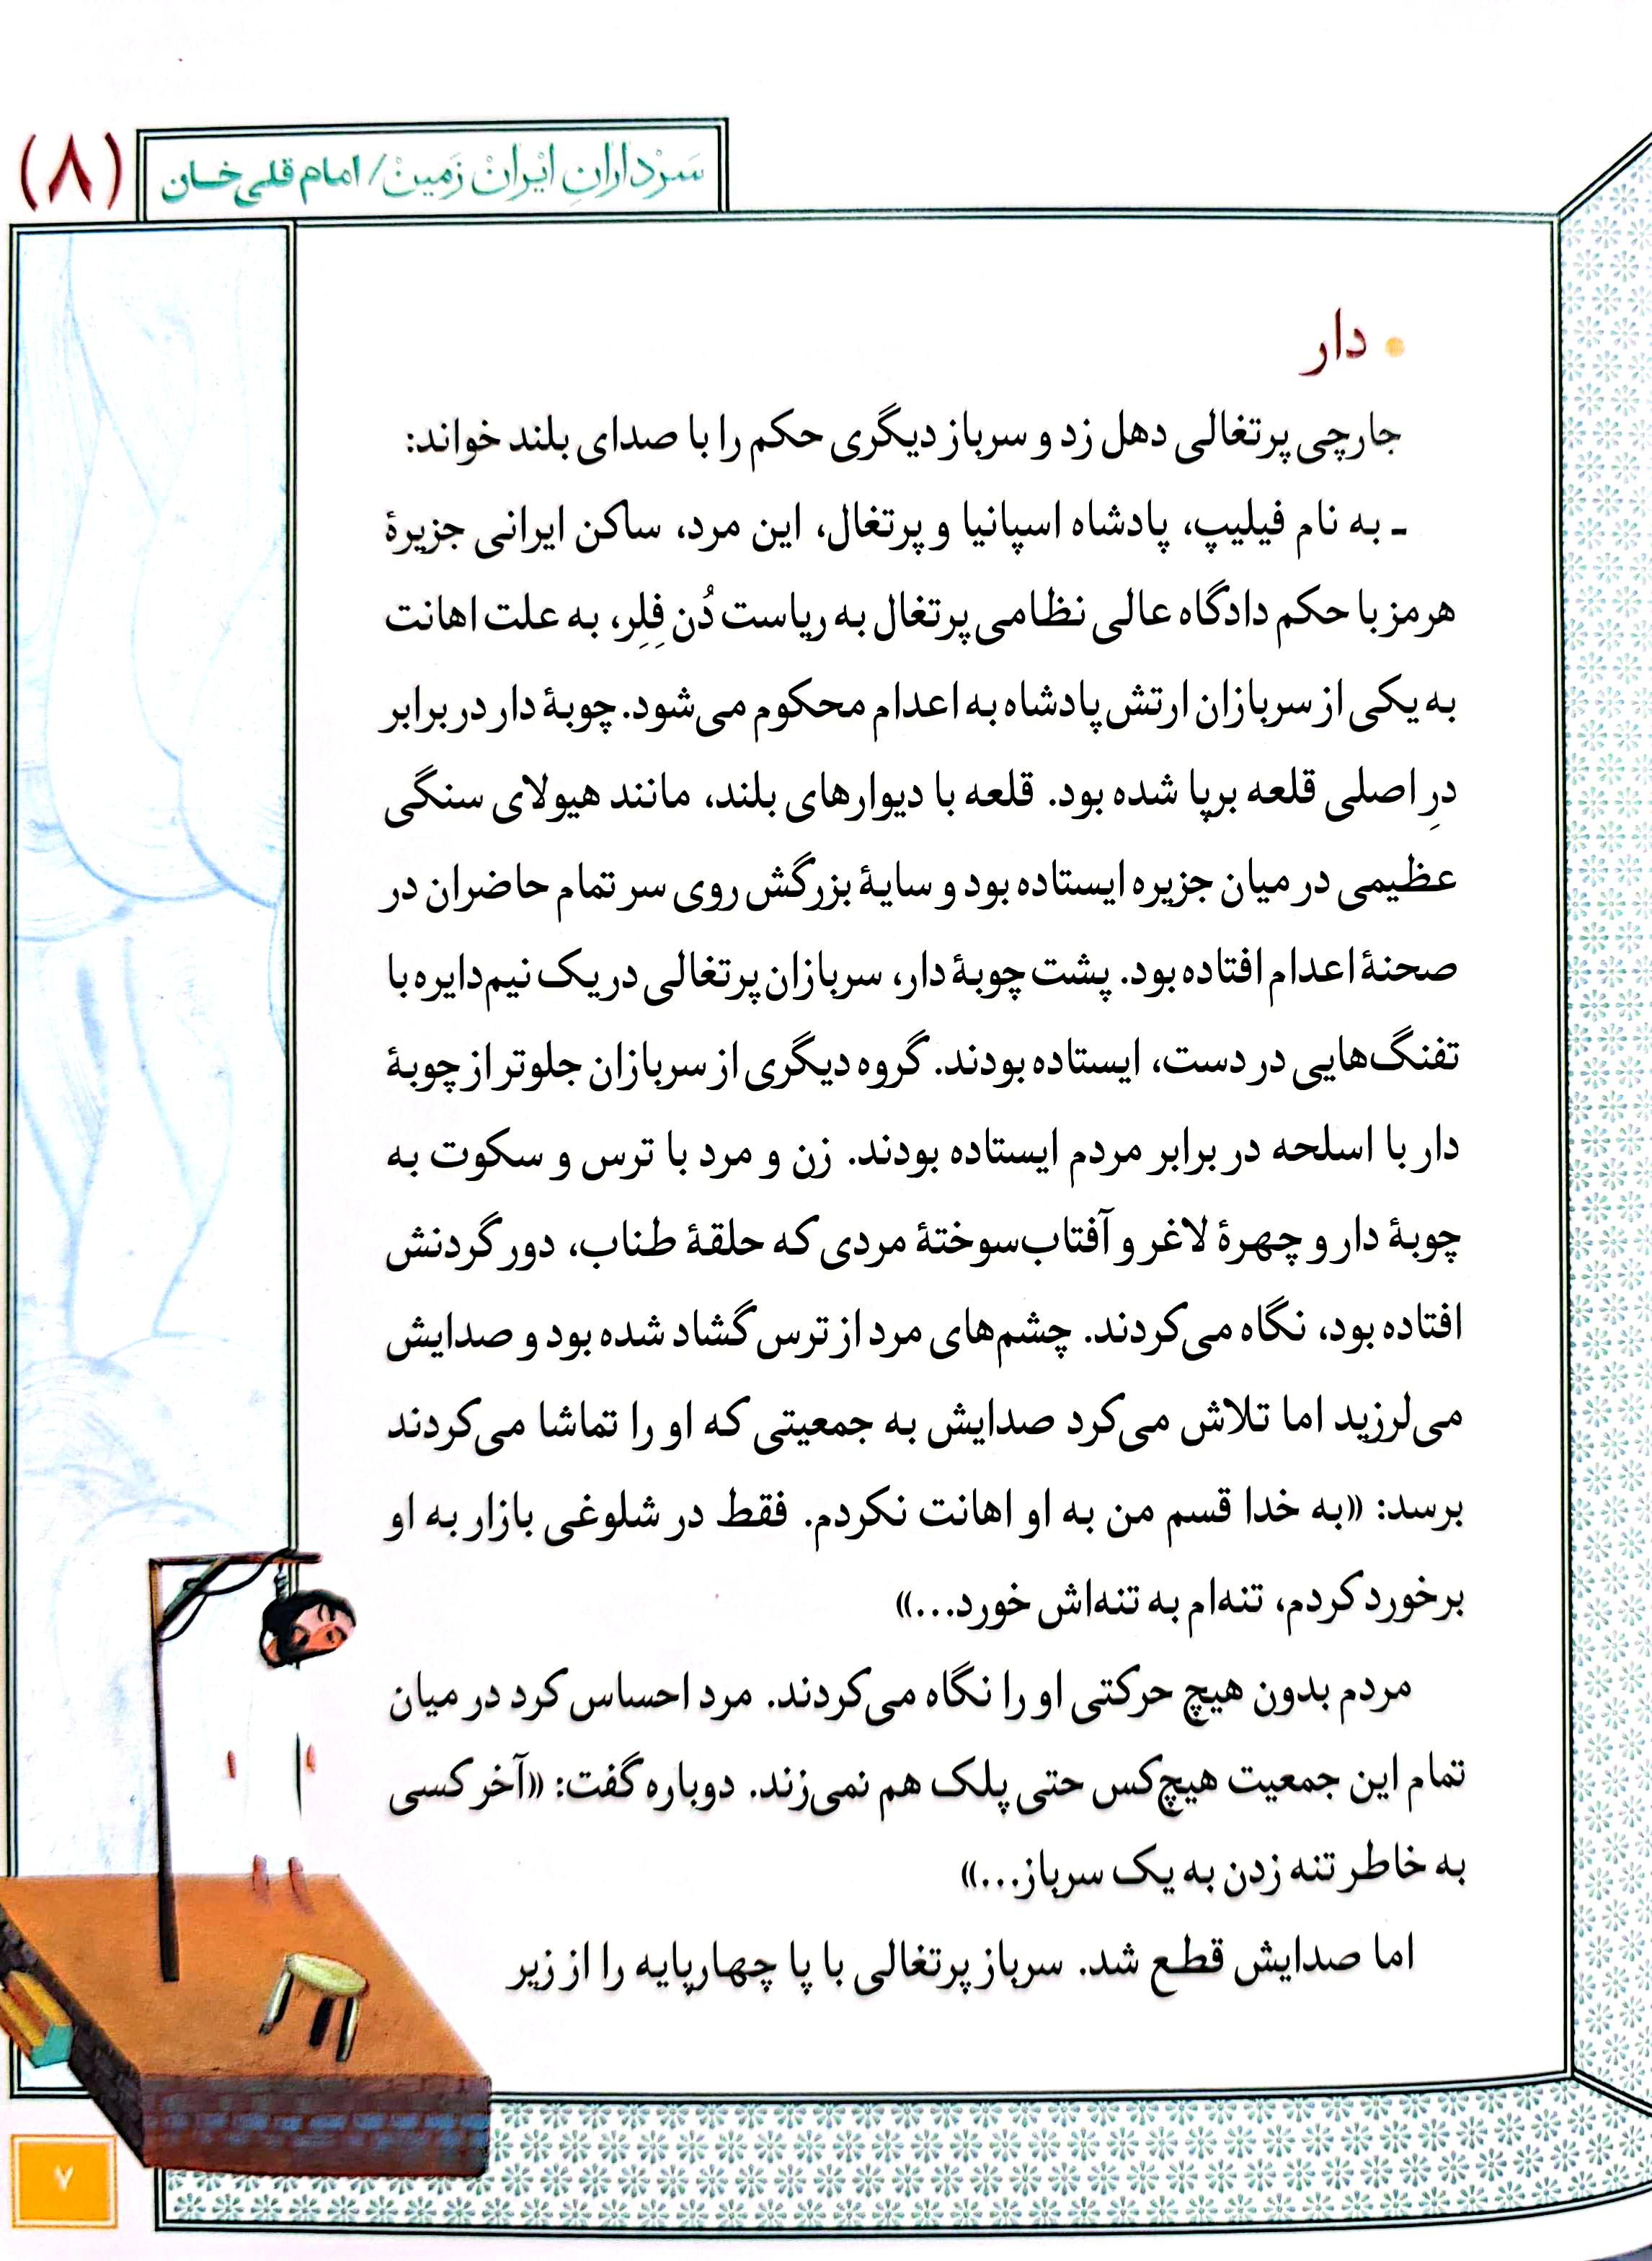 سرداران ایران زمین/ امام قلی خان (۸)
• دار
جارچی پرتغالی دهل زد و سرباز دیگری حکم را با صدای بلند خواند:
ـ به نام فیلیپ، پادشاه اسپانیا و پرتغال، این مرد، ساکن ایرانی جزیرهٔ
هرمز با حکم دادگاه عالی نظامی پرتغال به ریاست دُن فِلِر، به علت اهانت
به یکی از سربازان ارتش پادشاه به اعدام محکوم می‌شود. چوبهٔ دار در برابر
درِ اصلی قلعه برپا شده بود. قلعه با دیوارهای بلند، مانند هیولای سنگی
عظیمی در میان جزیره ایستاده بود و سایهٔ بزرگش روی سر تمام حاضران در
صحنهٔ اعدام افتاده بود. پشت چوبهٔ دار، سربازان پرتغالی در یک نیم‌دایره با
تفنگ‌هایی در دست، ایستاده بودند. گروه دیگری از سربازان جلوتر از چوبهٔ
دار با اسلحه در برابر مردم ایستاده بودند. زن و مرد با ترس و سکوت به
چوبهٔ دار و چهرهٔ لاغر و آفتاب‌سوختهٔ مردی که حلقهٔ طناب، دور گردنش
افتاده بود، نگاه می‌کردند. چشم‌های مرد از ترس گشاد شده بود و صدایش
می‌لرزید اما تلاش می‌کرد صدایش به جمعیتی که او را تماشا می‌کردند
برسد: «به خدا قسم من به او اهانت نکردم. فقط در شلوغی بازار به او
برخورد کردم، تنه‌ام به تنه‌اش خورد...»
مردم بدون هیچ حرکتی او را نگاه می‌کردند. مرد احساس کرد در میان
تمام این جمعیت هیچ‌کس حتی پلک هم نمی‌زند. دوباره گفت: «آخر کسی
به خاطر تنه زدن به یک سرباز...»
اما صدایش قطع شد. سرباز پرتغالی با پا چهارپایه را از زیر
۷